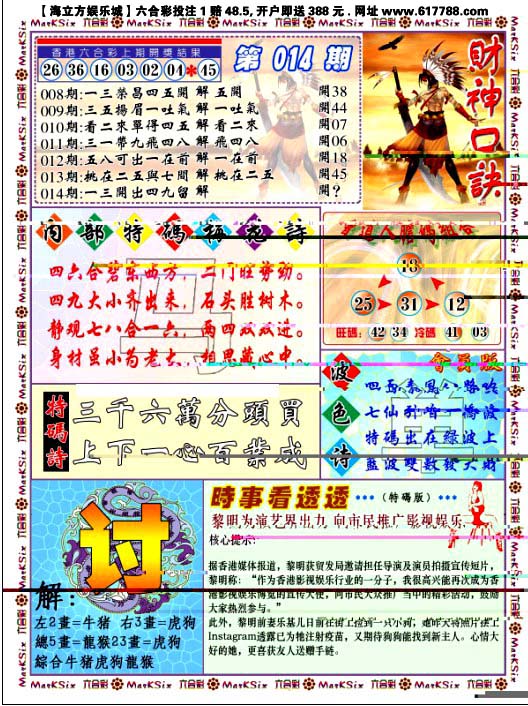 【海立方娱乐城】六合彩投注1赔48.5,开户即送388元．网址www.617788.com
香港六合彩上期開獎結果
26 36 16 03 02 04 * 45
第014期
財神口訣
008期:一三榮昌四五開 解 五開 開38
009期:三五揚眉一吐氣 解 一吐氣 開44
010期:看二來單得四五 解 看二來 開07
011期:三一帶九飛四八 解 飛四八 開06
012期:五八可出一在前 解 一在前 開18
013期:桃在二五與七間 解 桃在二五 開45
014期:一三開出四九留 解 開?
內部特碼
詩
四六合碧东西方，二门旺势劲。
四九大小齐出来，石头胜树木。
静观七八合一六，两四双双进。
身材虽小为老大，相思藏心中。
18
25 31 12
旺碼: 42 34 冷碼 41 03
特碼詩
三千六萬分頭買
上下一心百業成
波色诗
會員版
七仙
特碼出在綠波上
藍波雙數發大財
讨
解:
左2畫=牛猪 右3畫=虎狗
總5畫=龍猴23畫=虎狗
綜合牛猪虎狗龍猴
時事看透透 •••（特碼版）•••
黎明为演艺界出力 向市民推广影视娱乐
核心提示：
据香港媒体报道，黎明获贸发局邀请担任导演及演员拍摄宣传短片，
黎明称：“作为香港影视娱乐行业的一分子，我很高兴能再次成为香
港影视娱乐博览的宣传大使，向市民大众推广当中的精彩活动，鼓励
大家热烈参与。”
此外，黎明前妻乐基儿日前在街上捡到一只小狗，她昨天将照片摆上
Instagram透露已为牠注射疫苗，又期待狗狗能找到新主人。心情大
好的她，更喜获友人送赠手链。
MarKSix 六合彩